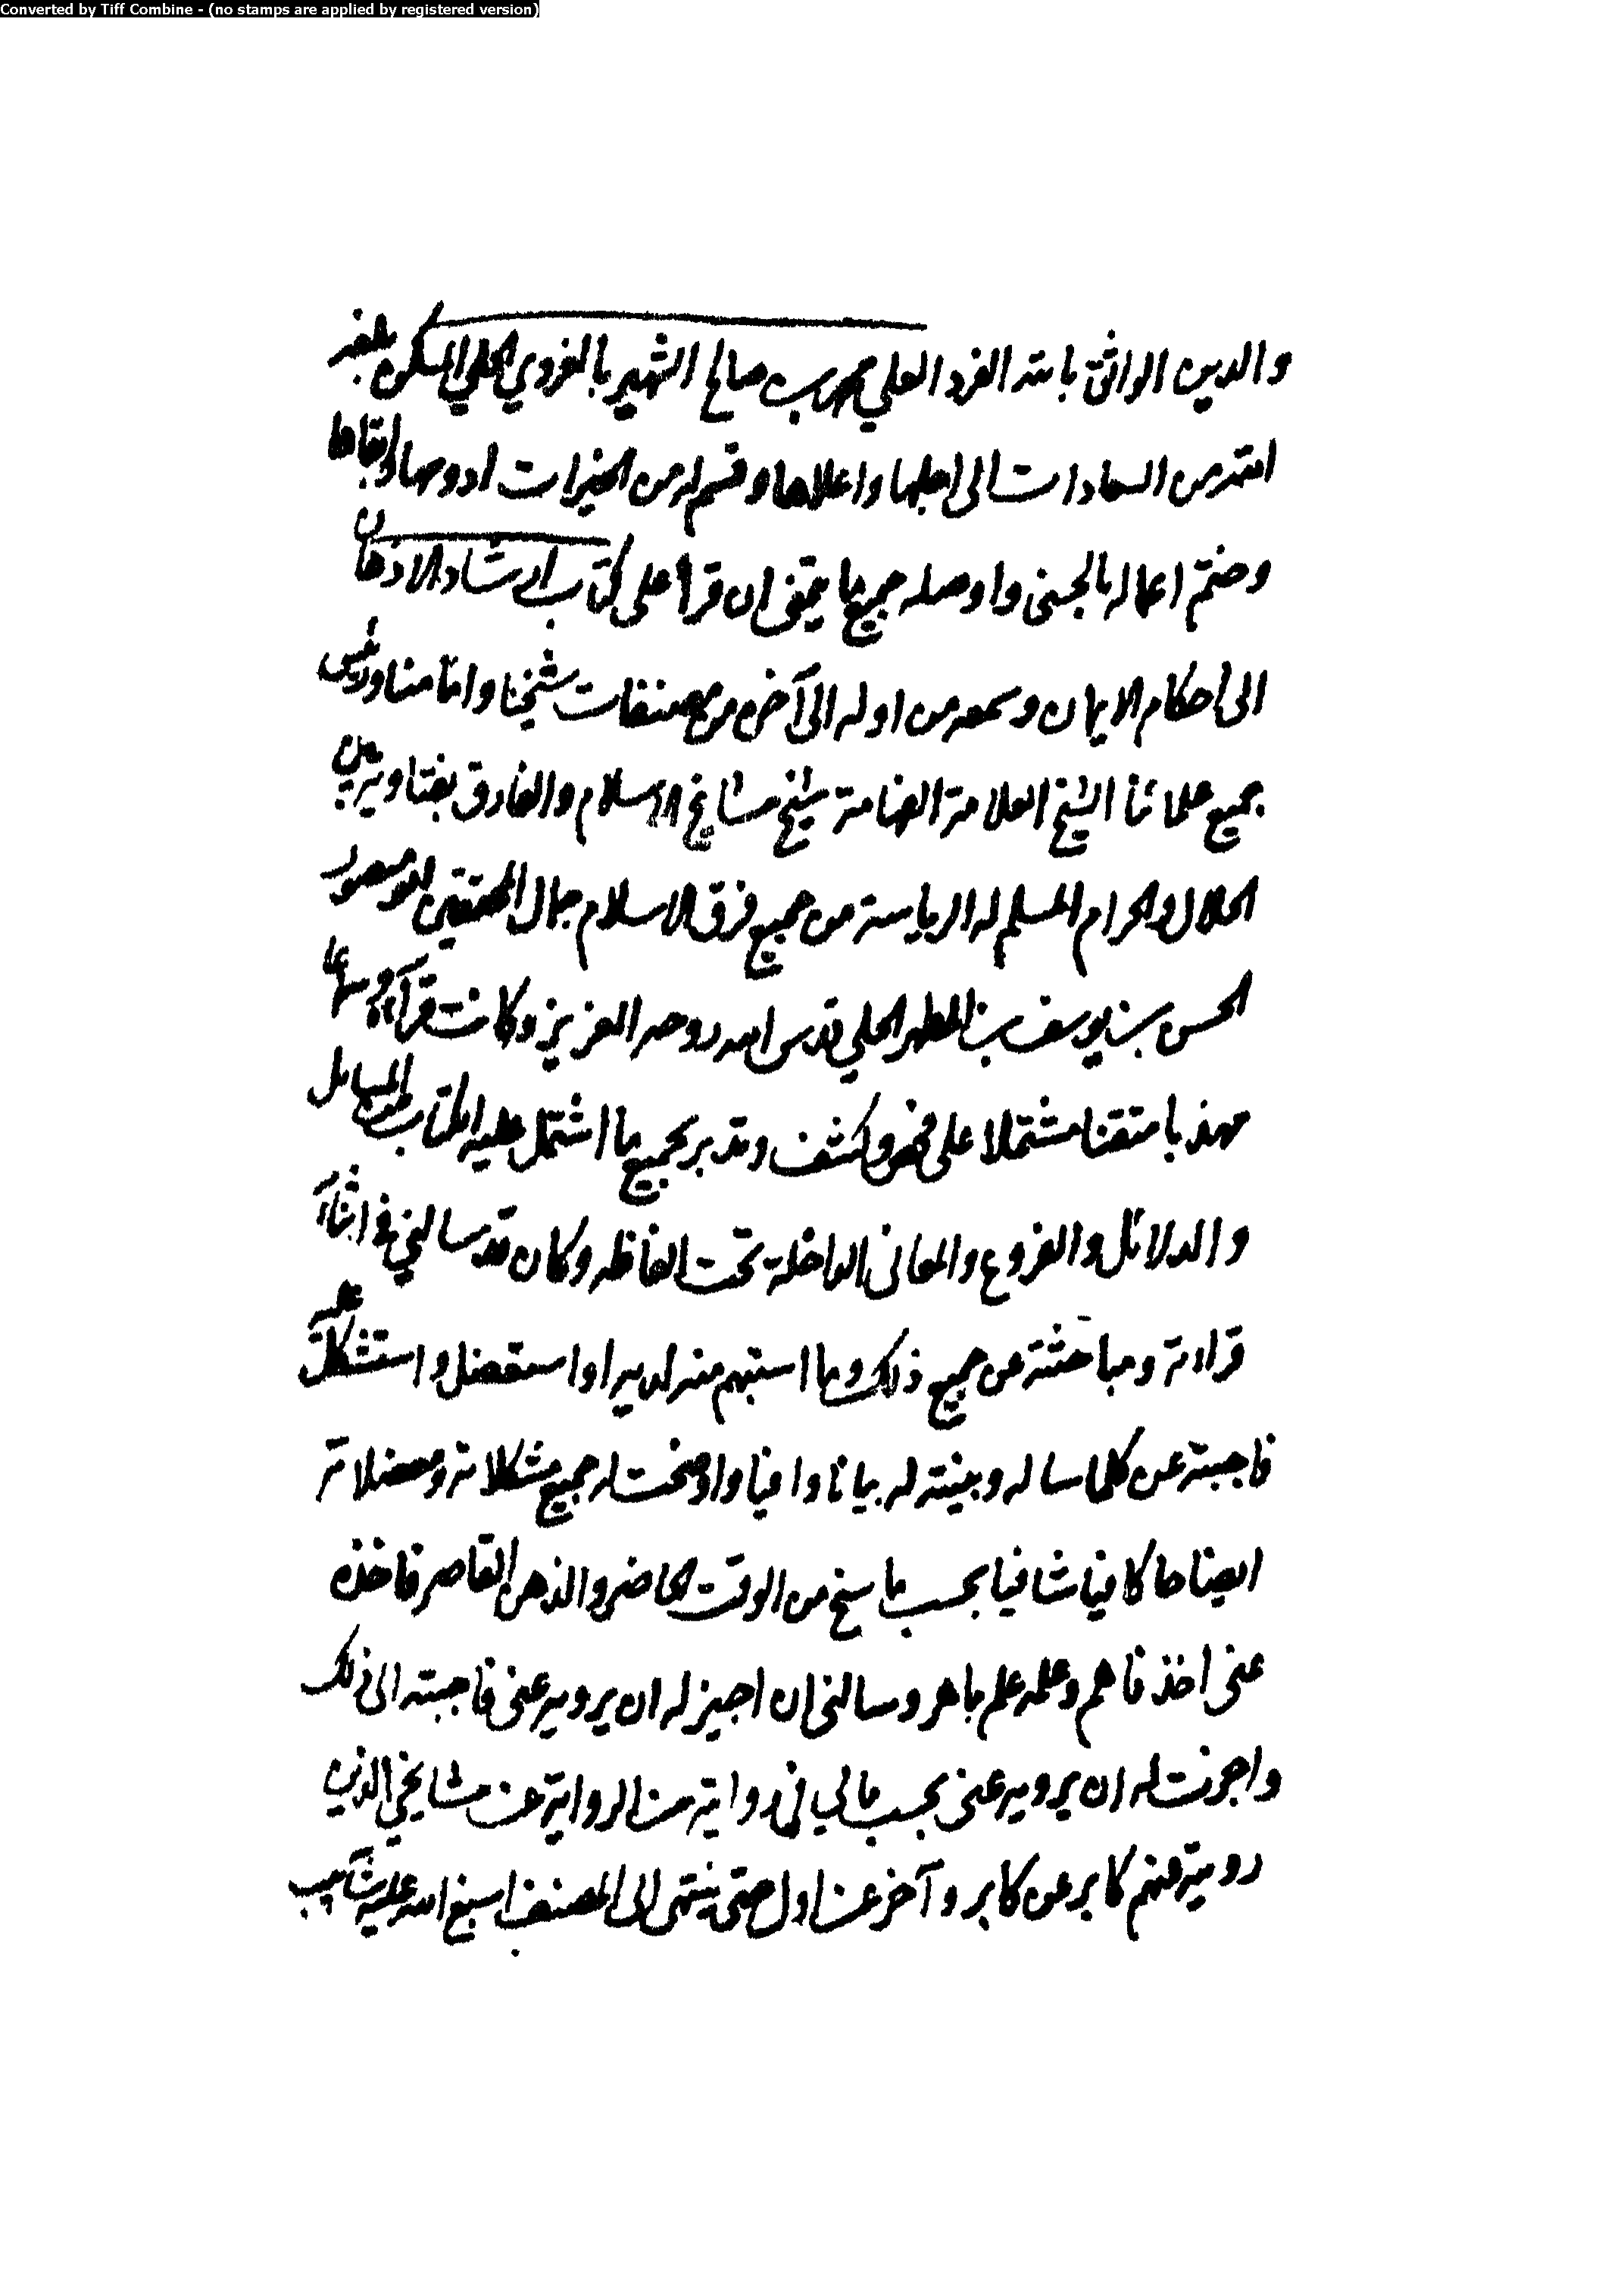 Converted by Tiff Combine - (no stamps are applied by registered version)
والدين الواثق بالله الفرد العلي محمد بن صالح الشهير بالغروي الحلي المسكن بلغه
الله من السعادات الى اجلها واعلاها وقسم له من الخيرات ادومها وابقاها
وختم اعماله بالحسنى واوصله جميع ما يتمنى ان قرأ على كتاب ارشاد الاذهان
الى احكام الايمان وسمعه من اوله الى آخره من مصنفات شيخنا وامامنا ورئيس
جميع علمائنا الشيخ العلامة الفهامة شيخ مشايخ الاسلام والفارق بفتاويه بين
الحلال والحرام المسلم له الرياسة من جميع فرق الاسلام جمال المحققين ابو منصور
الحسن بن يوسف بن المطهر الحلي قدس الله روحه العزيز وكانت قرآءة وسماعا
مهذبا متقنا مشتملا على فحص وكشف وتدبر بجميع ما اشتمل عليه الكتاب من المسايل
والدلائل والفروع والمعانى الداخلة تحت الفاظه وكان قد سالني في اثنآء
قراءته ومباحثته عن جميع ذلك وما استبهم منه لديه او استعضل واستشكل عليه
فاجبته عن كلما ساله وبينته له بيانا وافيا واوضحت له جميع مشكلاته ومعضلاته
ايضاحا كافيا شافيا بحسب ما سنح من الوقت الحاضر والذهن القاصر فاخذه
عنى اخذ فاهم وعلمه علم ماهر وسالنى ان اجيز له ان يرويه عنى فاجبته الى ذلك
واجزت له ان يرويه عنى بحسب مالي في روايته من الرواية عن مشايخي الذين
رويته عنهم كابر عن كابر وآخر عن اول حتى ينتهى الى المصنف اسبغ الله عليه شآبيب